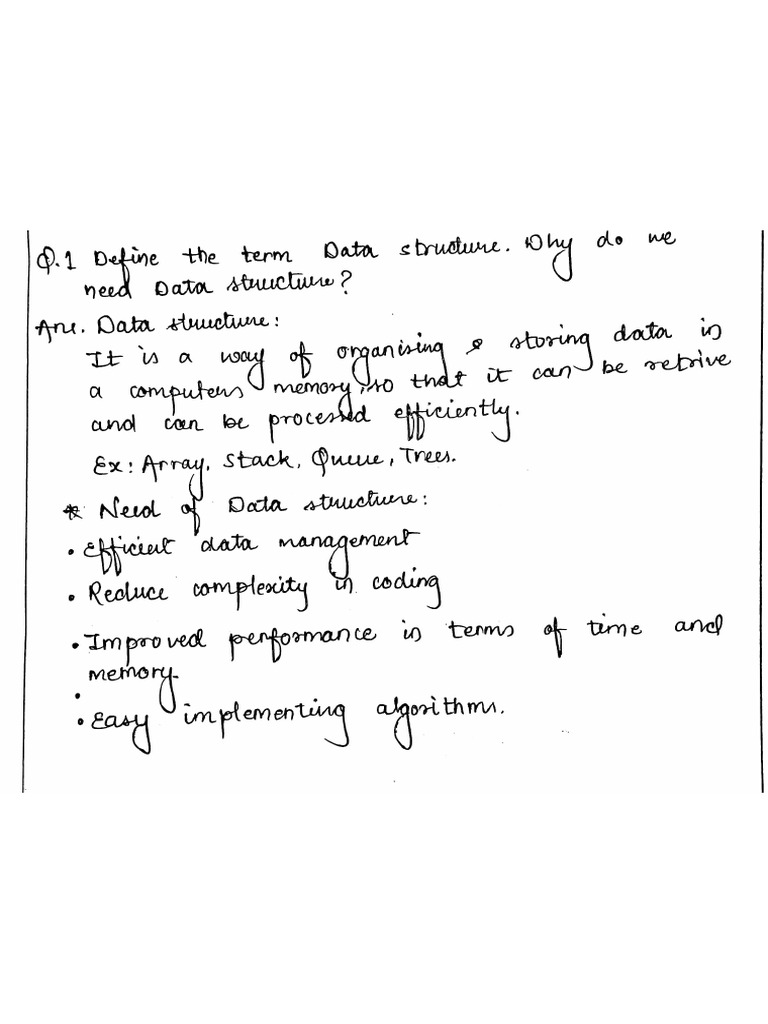 Q.1 Define the term Data structure. Why do we
need Data structure?
Ans. Data structure:
It is a way of organising & storing data in
a computers memory, so that it can be retrive
and can be processed efficiently.
Ex: Array, Stack, Queue, Trees.
* Need of Data structure:
• Efficient data management
• Reduce complexity in coding
• Improved performance in terms of time and
memory.
•
• Easy implementing algorithms.